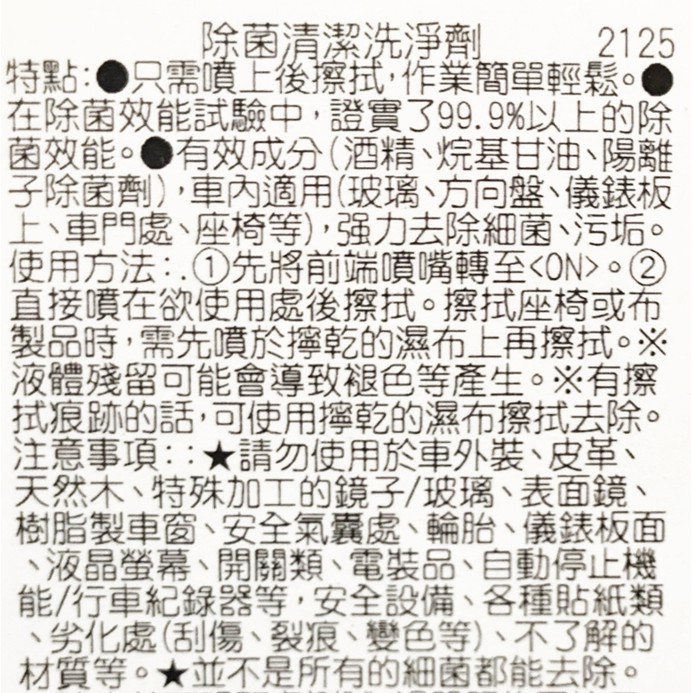 除菌清潔洗淨劑 2125
特點:●只需噴上後擦拭,作業簡單輕鬆。●
在除菌效能試驗中,證實了99.9%以上的除
菌效能。●有效成分(酒精、烷基甘油、陽離
子除菌劑),車內適用(玻璃、方向盤、儀錶板
上、車門處、座椅等),強力去除細菌、污垢。
使用方法:.①先將前端噴嘴轉至<ON>。②
直接噴在欲使用處後擦拭。擦拭座椅或布
製品時,需先噴於擰乾的濕布上再擦拭。※
液體殘留可能會導致褪色等產生。※有擦
拭痕跡的話,可使用擰乾的濕布擦拭去除。
注意事項::★請勿使用於車外裝、皮革、
天然木、特殊加工的鏡子/玻璃、表面鏡、
樹脂製車窗、安全氣囊處、輪胎、儀錶板面
、液晶螢幕、開關類、電裝品、自動停止機
能/行車紀錄器等,安全設備、各種貼紙類
、劣化處(刮傷、裂痕、變色等)、不了解的
材質等。★並不是所有的細菌都能去除。